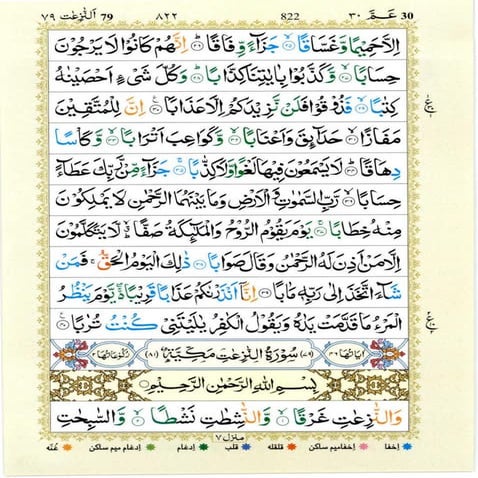 30 عـمّ ۳۰ 822 ۸۲۲ 79 النّٰزعٰت ۷۹
اِلَّا حَمِیْمًا وَّ غَسَّاقًا ۙ۲۵ جَزَآءً وِّفَاقًا ؕ۲۶ اِنَّهُمْ كَانُوْا لَا یَرْجُوْنَ
حِسَابًا ۙ۲۷ وَّ كَذَّبُوْا بِاٰیٰتِنَا كِذَّابًا ؕ۲۸ وَ كُلَّ شَیْءٍ اَحْصَیْنٰهُ
كِتٰبًا ۙ۲۹ فَذُوْقُوْا فَلَنْ نَّزِیْدَكُمْ اِلَّا عَذَابًا ۠۳۰ اِنَّ لِلْمُتَّقِیْنَ
مَفَازًا ۙ۳۱ حَدَآىِٕقَ وَ اَعْنَابًا ۙ۳۲ وَّ كَوَاعِبَ اَتْرَابًا ۙ۳۳ وَّ كَاْسًا
دِهَاقًا ؕ۳۴ لَا یَسْمَعُوْنَ فِیْهَا لَغْوًا وَّ لَا كِذّٰبًا ۚ۳۵ جَزَآءً مِّنْ رَّبِّكَ عَطَآءً
حِسَابًا ۙ۳۶ رَّبِّ السَّمٰوٰتِ وَ الْاَرْضِ وَ مَا بَیْنَهُمَا الرَّحْمٰنِ لَا یَمْلِكُوْنَ
مِنْهُ خِطَابًا ۚ۳۷ یَوْمَ یَقُوْمُ الرُّوْحُ وَ الْمَلٰٓىِٕكَةُ صَفًّا ۙۗؕ لَّا یَتَكَلَّمُوْنَ
اِلَّا مَنْ اَذِنَ لَهُ الرَّحْمٰنُ وَ قَالَ صَوَابًا ۳۸ ذٰلِكَ الْیَوْمُ الْحَقُّ ۚ فَمَنْ
شَآءَ اتَّخَذَ اِلٰی رَبِّهٖ مَاٰبًا ۳۹ اِنَّاۤ اَنْذَرْنٰكُمْ عَذَابًا قَرِیْبًا ۖۚ۬ یَّوْمَ یَنْظُرُ
الْمَرْءُ مَا قَدَّمَتْ یَدٰهُ وَ یَقُوْلُ الْكٰفِرُ یٰلَیْتَنِیْ كُنْتُ تُرٰبًا ۠۴۰
اٰیَاتُهَا ۴۶ (۷۹) سُوْرَةُ النّٰزِعٰتِ مَكِّیَّةٌ (۸۱) رُكُوْعَاتُهَا ۲
بِسْمِ اللّٰهِ الرَّحْمٰنِ الرَّحِیْمِ
وَ النّٰزِعٰتِ غَرْقًا ۙ۱ وَّ النّٰشِطٰتِ نَشْطًا ۙ۲ وَّ السّٰبِحٰتِ
منزل ۷
اخفا اخفامیم ساکن قلقله قلب ادغام ادغام میم ساکن غنّه